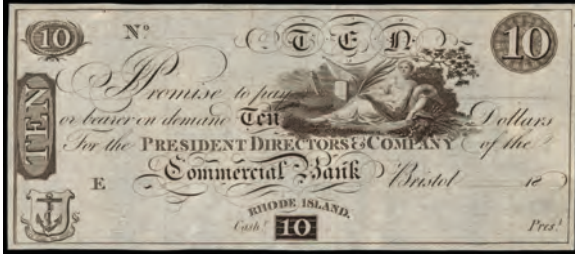 10 Nº TEN 10
Promise to pay
TEN
or bearer on demand Ten Dollars
For the PRESIDENT DIRECTORS & COMPANY of the
E Commercial Bank Bristol 18
RHODE ISLAND.
Cashr 10 Prest